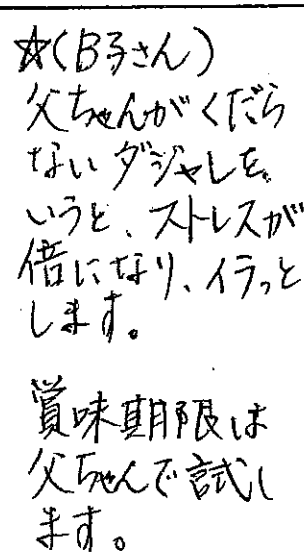 ☆(B子さん)
父ちゃんがくだら
ないダジャレを
いうと、ストレスが
倍になり、イラっと
します。
賞味期限は
父ちゃんで試し
ます。